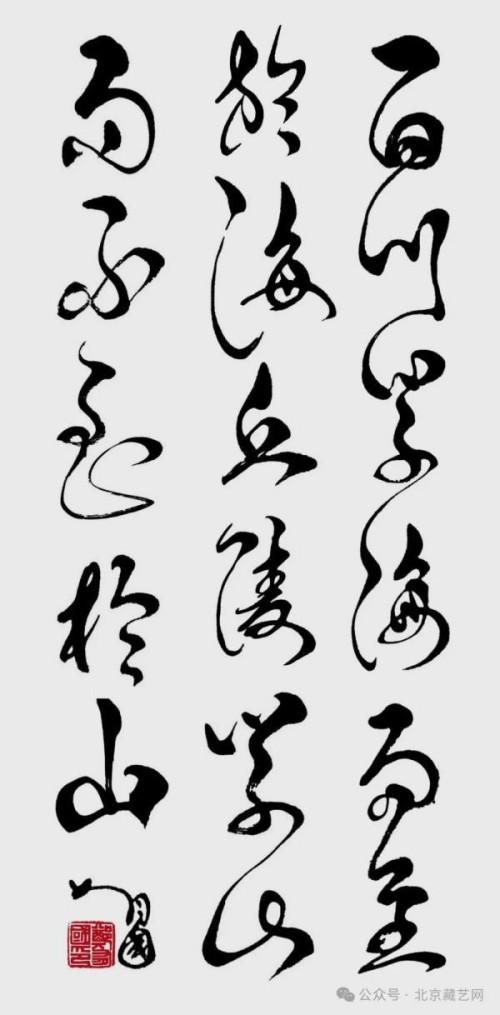 百川学海而至
于海丘陵学山
而不至于山
公众号·北京藏艺网